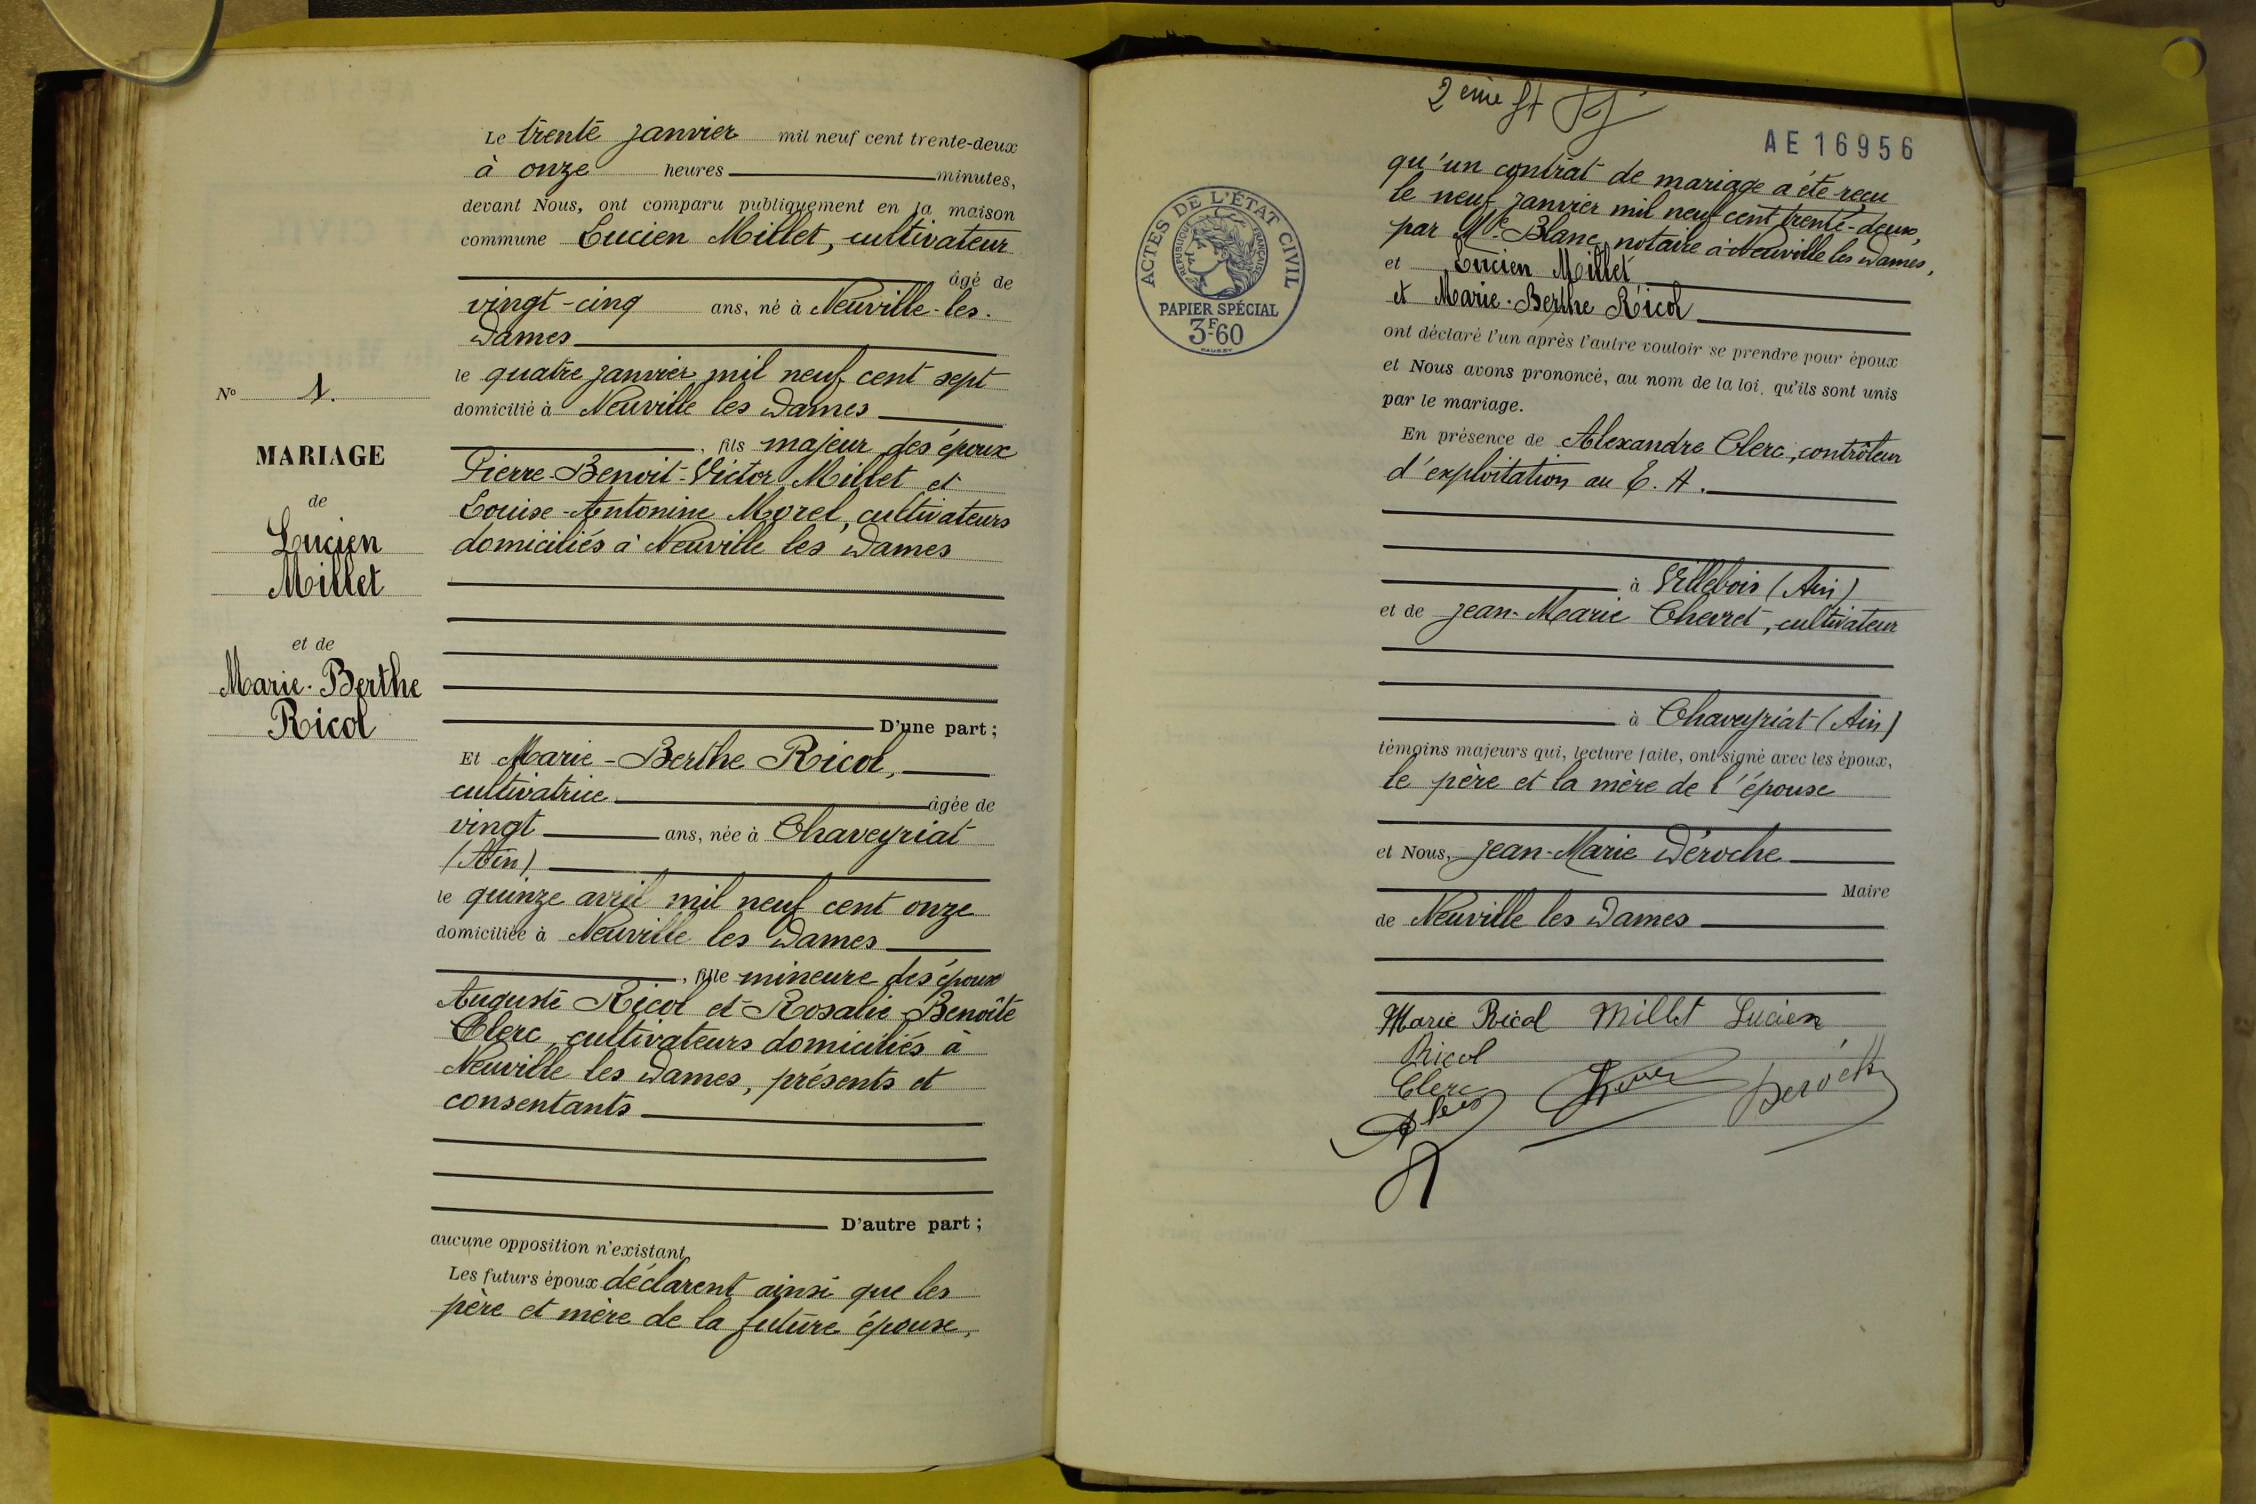 Le trente janvier mil neuf cent trente-deux
à onze heures minutes,
devant Nous, ont comparu publiquement en la maison
commune Lucien Millet, cultivateur
âgé de
vingt-cinq ans, né à Neuville-les-
Dames
le quatre janvier mil neuf cent sept
domicilié à Neuville les Dames
, fils majeur des époux
Pierre-Benoit-Victor Millet et
Louise-Antonine Morel, cultivateurs
domiciliés à Neuville les Dames
D'une part;
No 1.
MARIAGE
de
Lucien
Millet
et de
Marie-Berthe
Ricol
Et Marie-Berthe Ricol,
cultivatrice âgée de
vingt ans, née à Chaveyriat
(Ain)
le quinze avril mil neuf cent onze
domiciliée à Neuville les Dames
, fille mineure des époux
Auguste Ricol et Rosalie-Benoîte
Clerc, cultivateurs domiciliés à
Neuville les Dames, présents et
consentants
D'autre part;
aucune opposition n'existant,
Les futurs époux déclarent ainsi que les
père et mère de la future épouse,
2ème
AE 16956
ACTES DE L'ÉTAT CIVIL
RÉPUBLIQUE FRANÇAISE
PAPIER SPÉCIAL
3F60
qu'un contrat de mariage a été reçu
le neuf janvier mil neuf cent trente-deux,
par Me Blanc, notaire à Neuville les Dames,
et Lucien Millet
et Marie-Berthe Ricol
ont déclaré l'un après l'autre vouloir se prendre pour époux
et Nous avons prononcé, au nom de la loi, qu'ils sont unis
par le mariage.
En présence de Alexandre Clerc, contrôleur
d'exploitation au E. A.
à Villebois (Ain)
et de Jean-Marie Chevret, cultivateur
à Chaveyriat (Ain)
témoins majeurs qui, lecture faite, ont signé avec les époux,
le père et la mère de l'épouse
et Nous, Jean-Marie Déroche
Maire
de Neuville les Dames
Marie Ricol Millet Lucien
Ricol
Clerc
Déroche